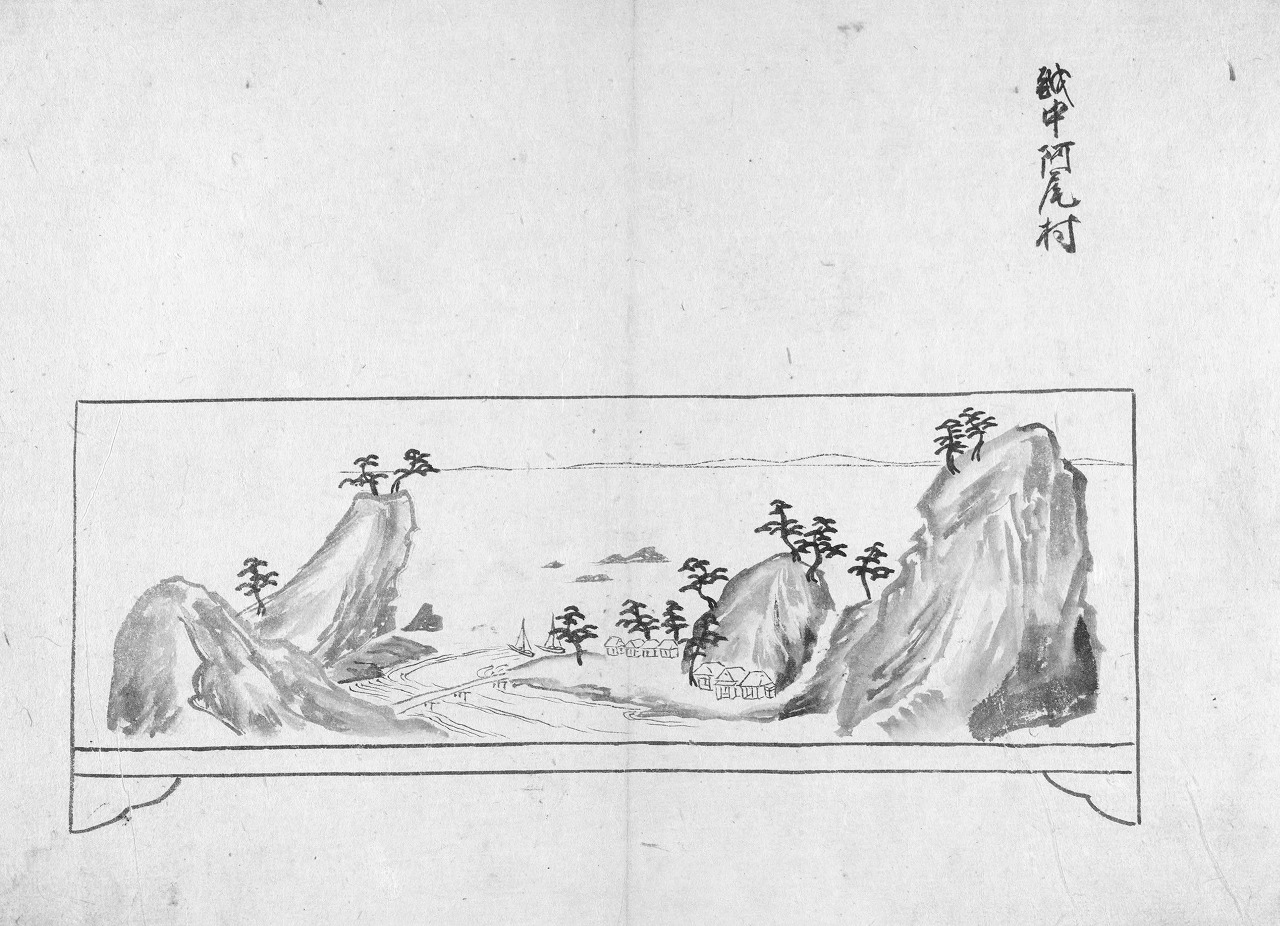 越中阿尾村